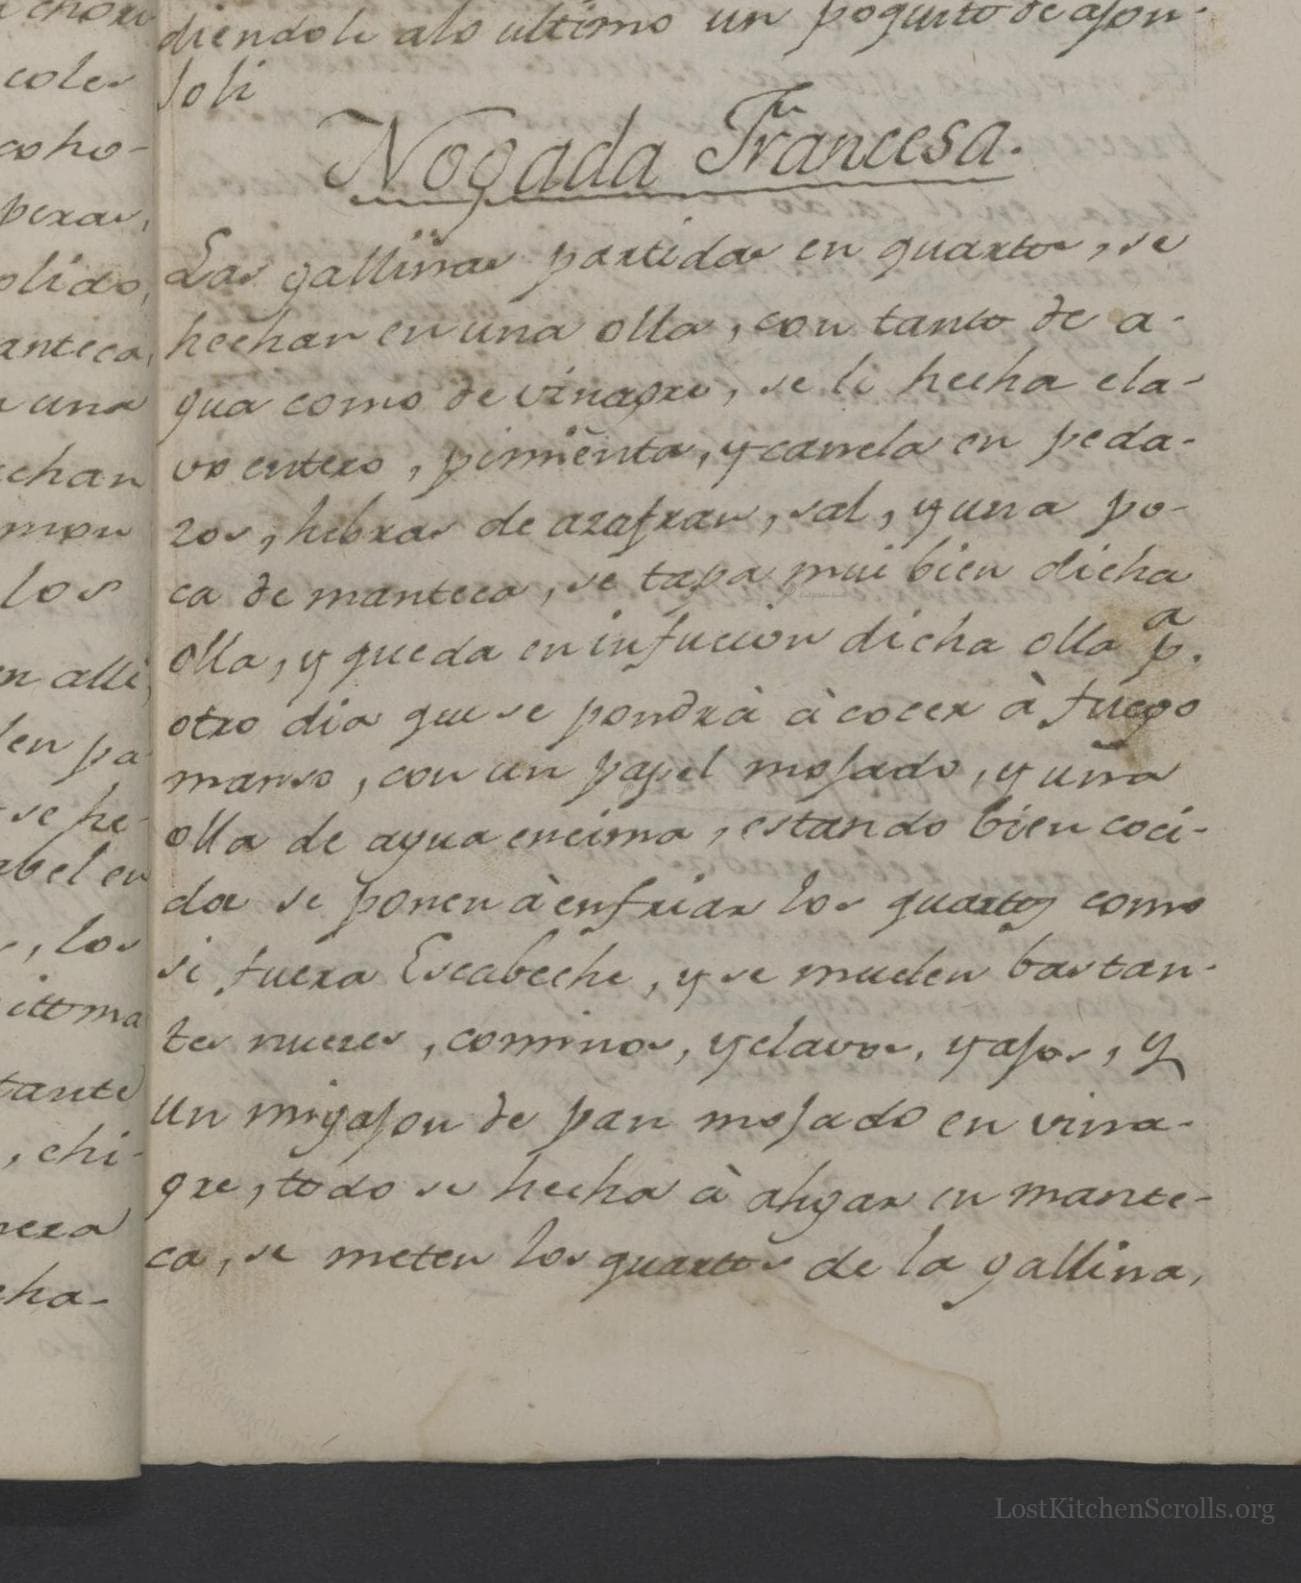 chori
coler
coho-
perar,
olido,
anteca,
una
echan
mon
los
en alli,
den pa-
se he-
abel en
, los
ittoma
tante
, chi-
nera
cha-
diendole alo ultimo un poquito de ajon-
joli
Nogada Francesa.
Las gallinas partidas en quartos, se
hechan en una olla, con tanto de a-
gua como de vinagre, se le hecha cla-
vo entero, pimienta, y canela en peda-
zos, hebras de azafran, sal, y una po-
ca de manteca, se tapa mui bien dicha
olla, y queda en infucion dicha olla pa.
otro dia que se pondrà à cocer à fuego
manso, con un papel mojado, y una
olla de agua encima, estando bien coci-
da se ponen à enfriar los quartos como
si fuera Escabeche, y se muelen bastan-
tes nueces, cominos, y clavos, y ajos, y
un migajon de pan mojado en vina-
gre, todo se hecha à ahgar en mante-
ca, se meten los quartos de la gallina,
LostKitchenScrolls.org